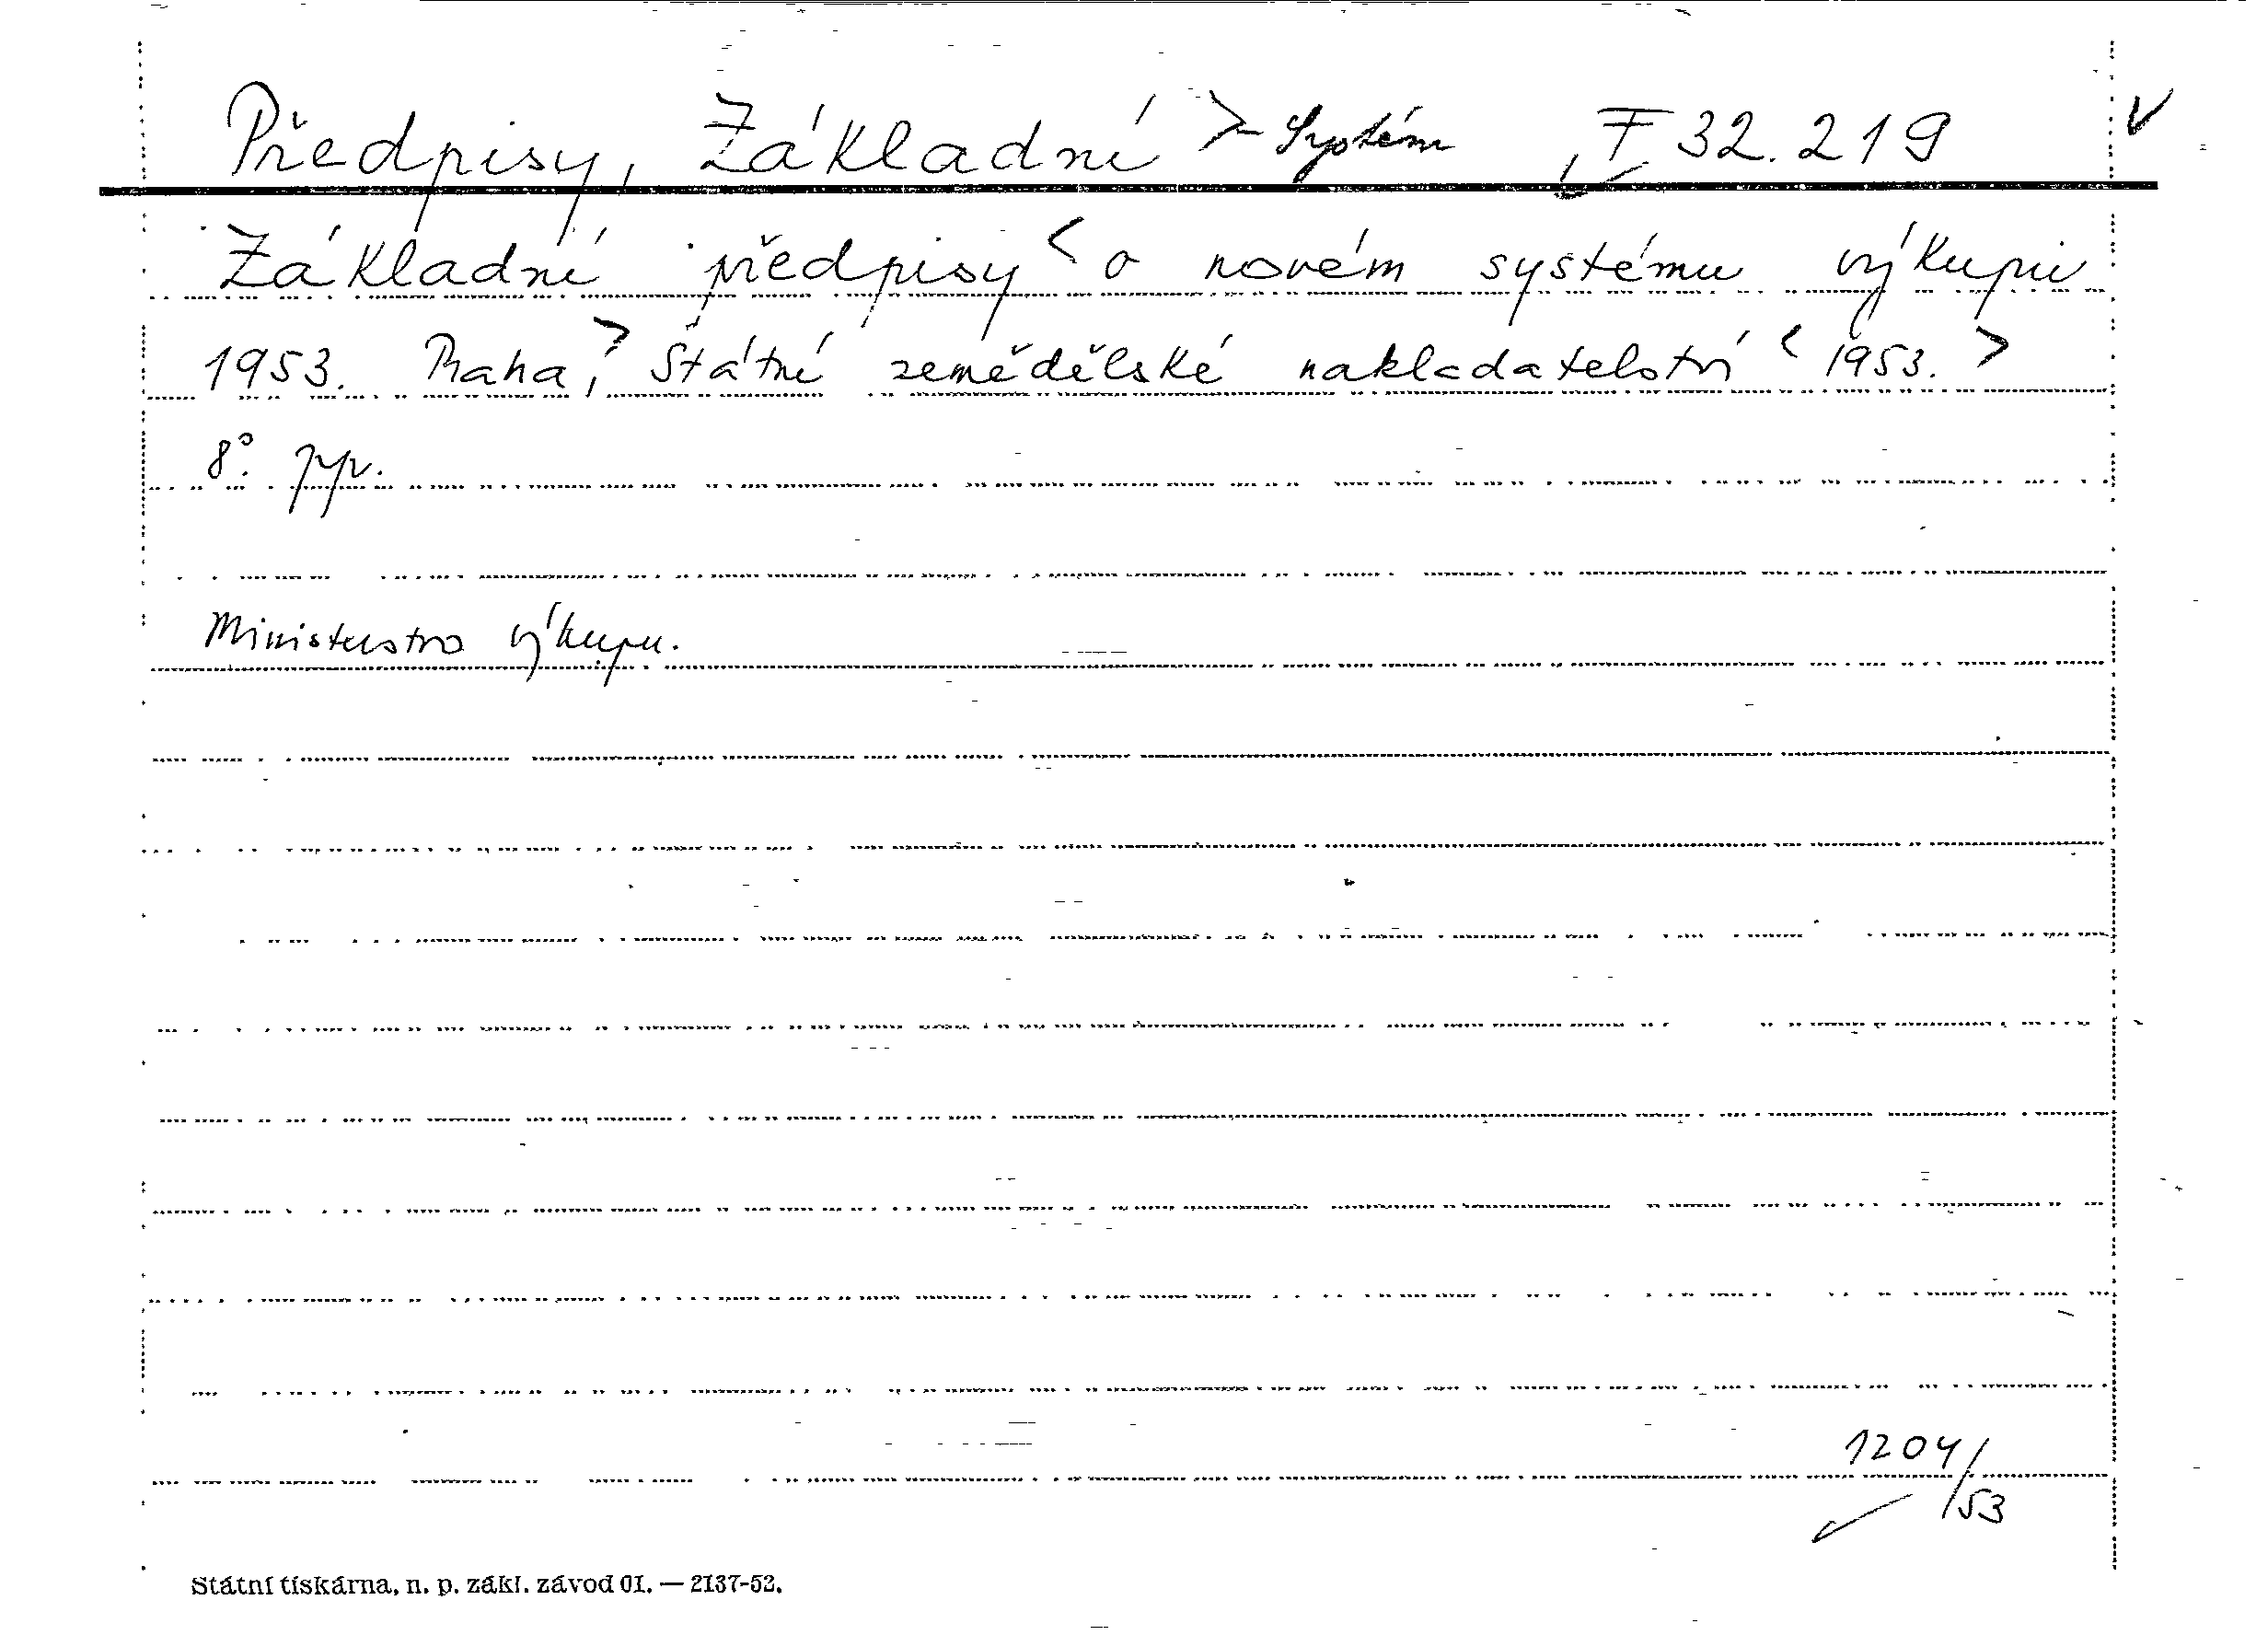 Předpisy, Základní > Systém F 32.219 V
Základní předpisy < o novém systému výkupu
1953. Praha, > Státní zemědělské nakladatelství < 1953. >
8°.
Ministerstvo výkupu.
1204/53
Státní tiskárna, n. p. zákl. závod 01. — 2137-52.